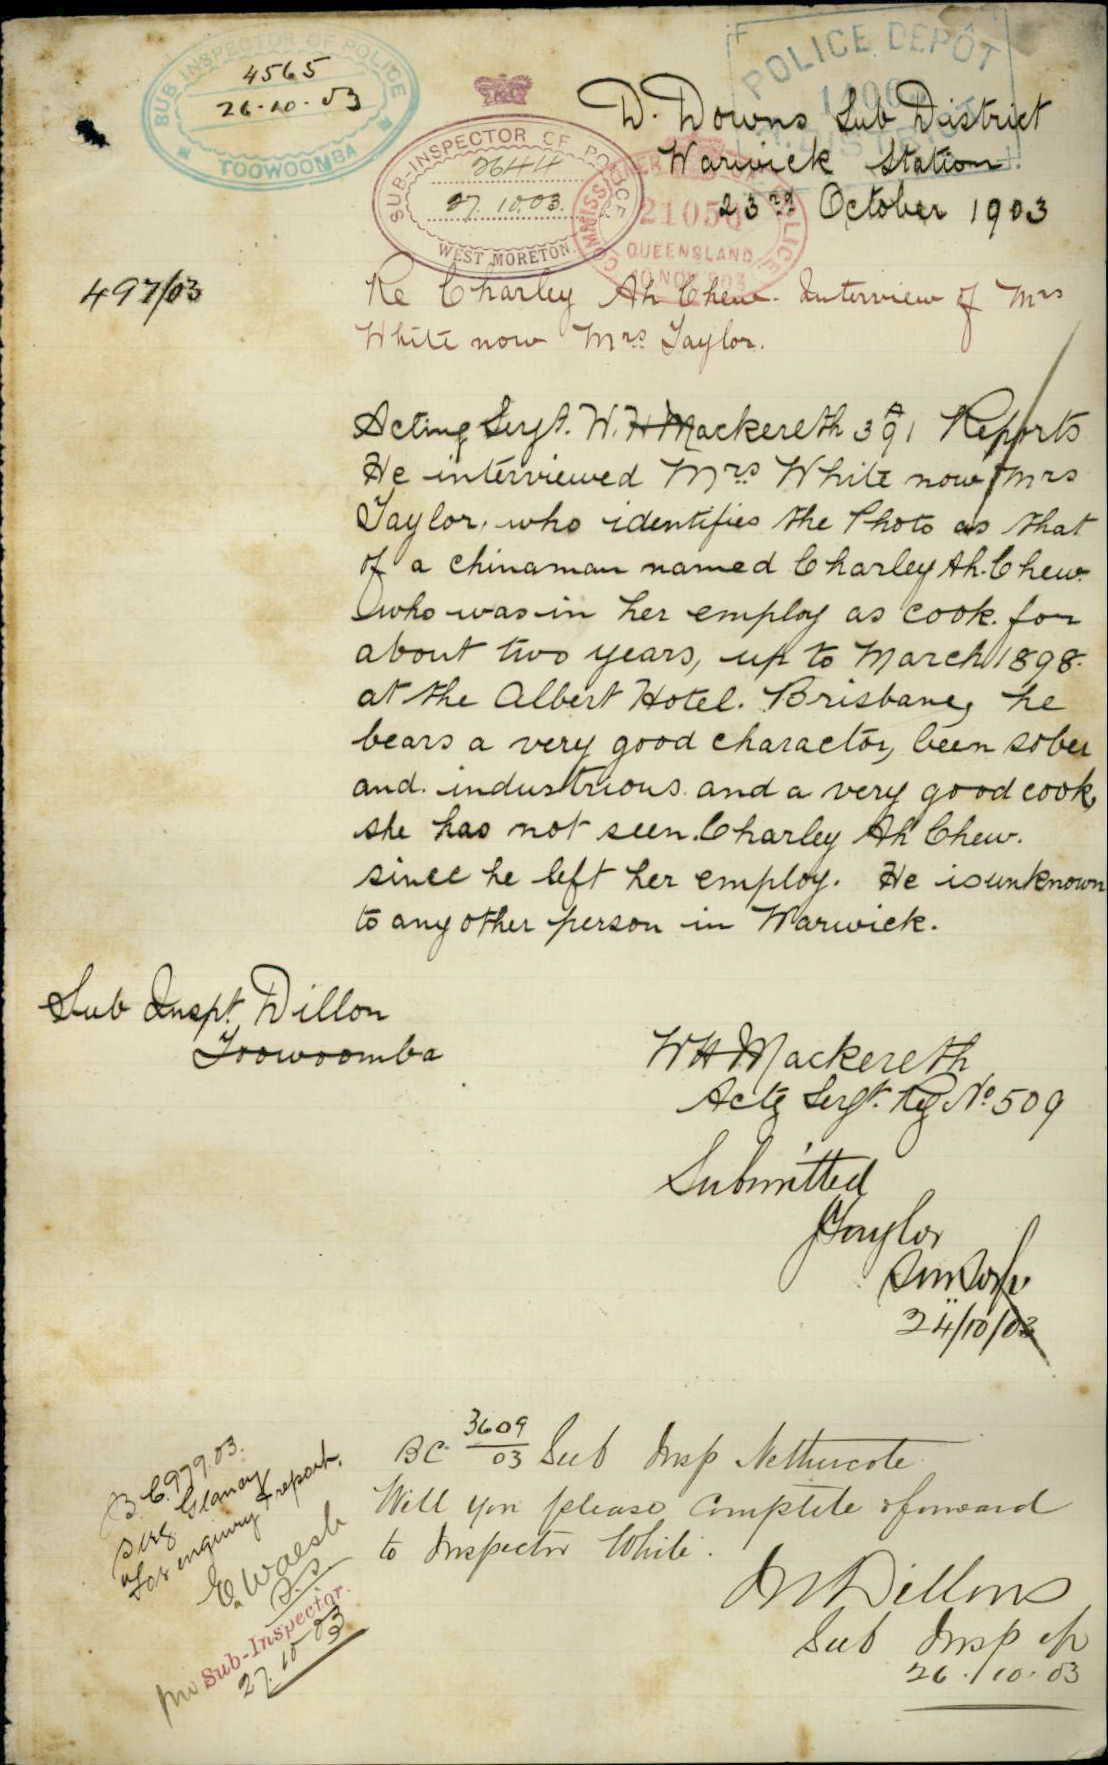 SUB INSPECTOR OF POLICE
4565
26.10.03
TOOWOOMBA
SUB-INSPECTOR OF POLICE
2644
27.10.03.
WEST MORETON
POLICE DEPÔT
COMMISSIONER OF POLICE
21056
QUEENSLAND
10 NOV 1903
D. Downs Sub District
Warwick Station.
23rd October 1903
497/03
Re Charley Ah Chew. Interview of Mrs
White now Mrs. Taylor.
Acting Sergt. W. H Mackereth 391 Reports
He interviewed Mrs White now Mrs
Taylor, who identifies the Photo as that
of a chinaman named Charley Ah. Chew.
who was in her employ as cook. for
about two years, up to March 1898.
at the Albert Hotel. Brisbane, he
bears a very good charactor, been sober
and. industrious. and a very good cook,
she has not seen. Charley Ah Chew.
since he left her employ. He is unknown
to any other person in Warwick.
Sub Inspt. Dillon
Toowoomba
WH Mackereth
Actg Sergt. Reg No. 509
Submitted
J Taylor
24/10/03
BC 3609/03 Sub Insp Nethercote
Will you please complete & forward
to Inspector White.
Dillon
Sub Insp
26.10.03
B.C. 979.03.
Serg Glancy
for enquiry & report.
E. Walsh
pro Sub-Inspector.
27.10.03